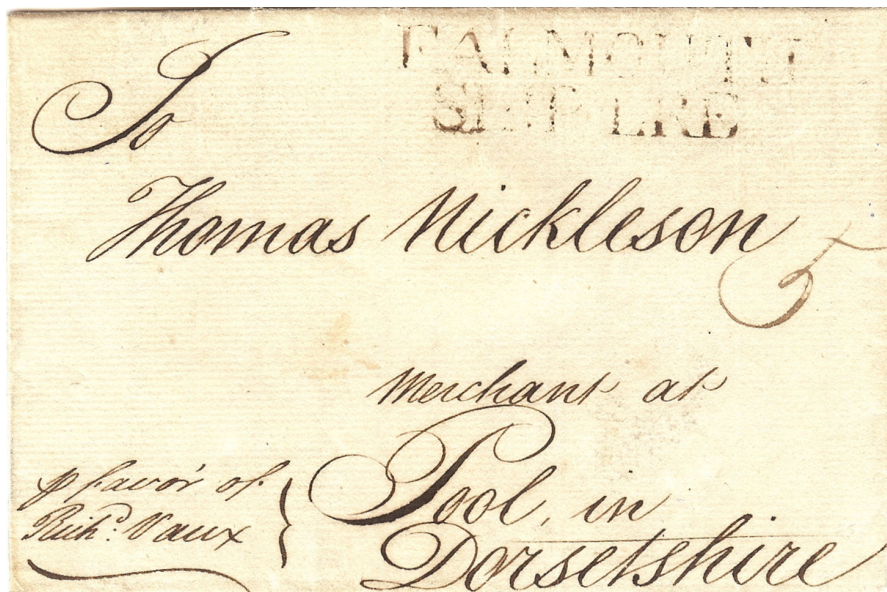 FALMOUTH
SHIP LRE
To
Thomas Nickleson
5
Merchant at
Pool, in
Dorsetshire
p favor of
Richd: Vaux